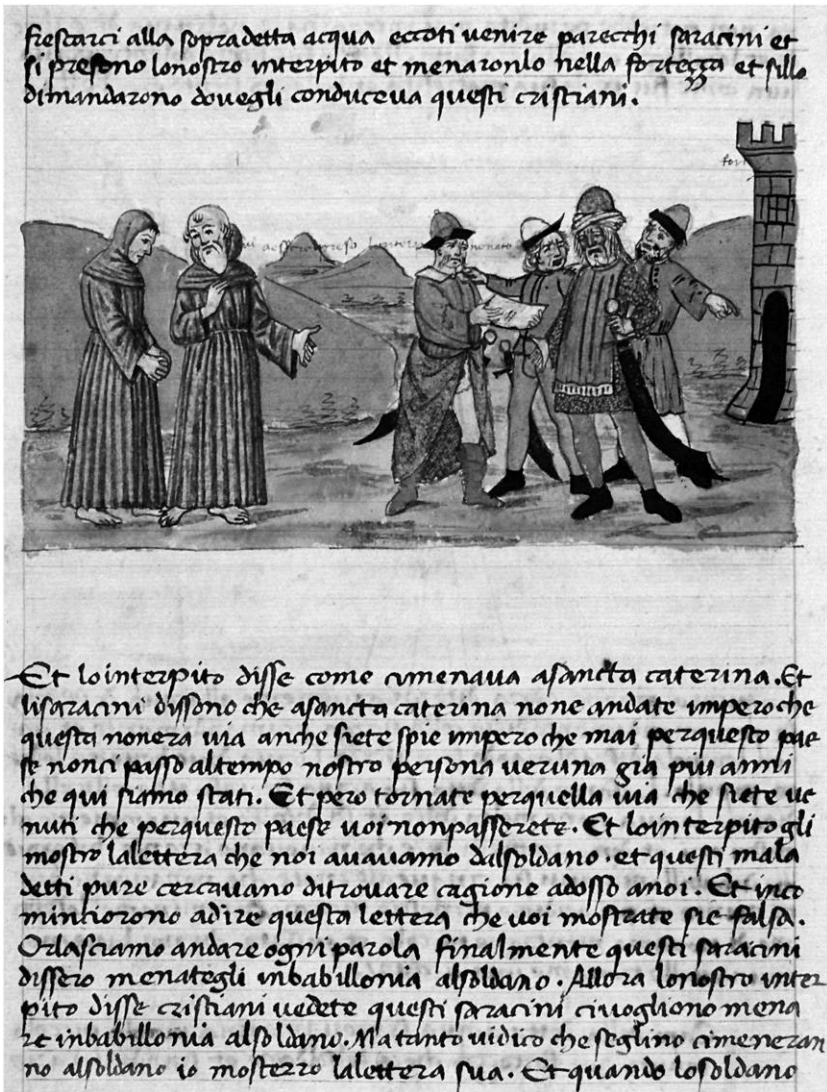 frescarci alla sopradetta acqua eccoti venire parecchi saracini et
si presono lonostro interpito et menaronlo nella fortezza et sillo
dimandarono dovegli conduceva questi cristiani.
Et lointerpito disse come cimenava asancta caterina. Et
lisaracini dissono che asancta caterina none andate imperoche
questa nonera uia anche siete spie imperoche mai perquesto pae
se nonci passo altempo nostro persona ueruna gia piu anni
che qui siamo stati. Et pero tornate perquella uia che siete ue
nuti che perquesto paese uoi nonpasserete. Et lointerpito gli
mostro lalettera che noi auauamo dalsoldano. et questi mala
detti pure cercauano ditrouare cagione adosso anoi. Et inco
minciorono adire questa lettera che uoi mostrate sie falsa.
Orlasciamo andare ogni parola finalmente questi saracini
dissero menategli inbabillonia alsoldano. Allora lonostro inter
pito disse cristiani uedete questi saracini ciuogliono mena
re inbabillonia alsoldano. Ma tanto uidico che seglino cimeneran
no alsoldano io mosterro lalettera sua. Et quando losoldano